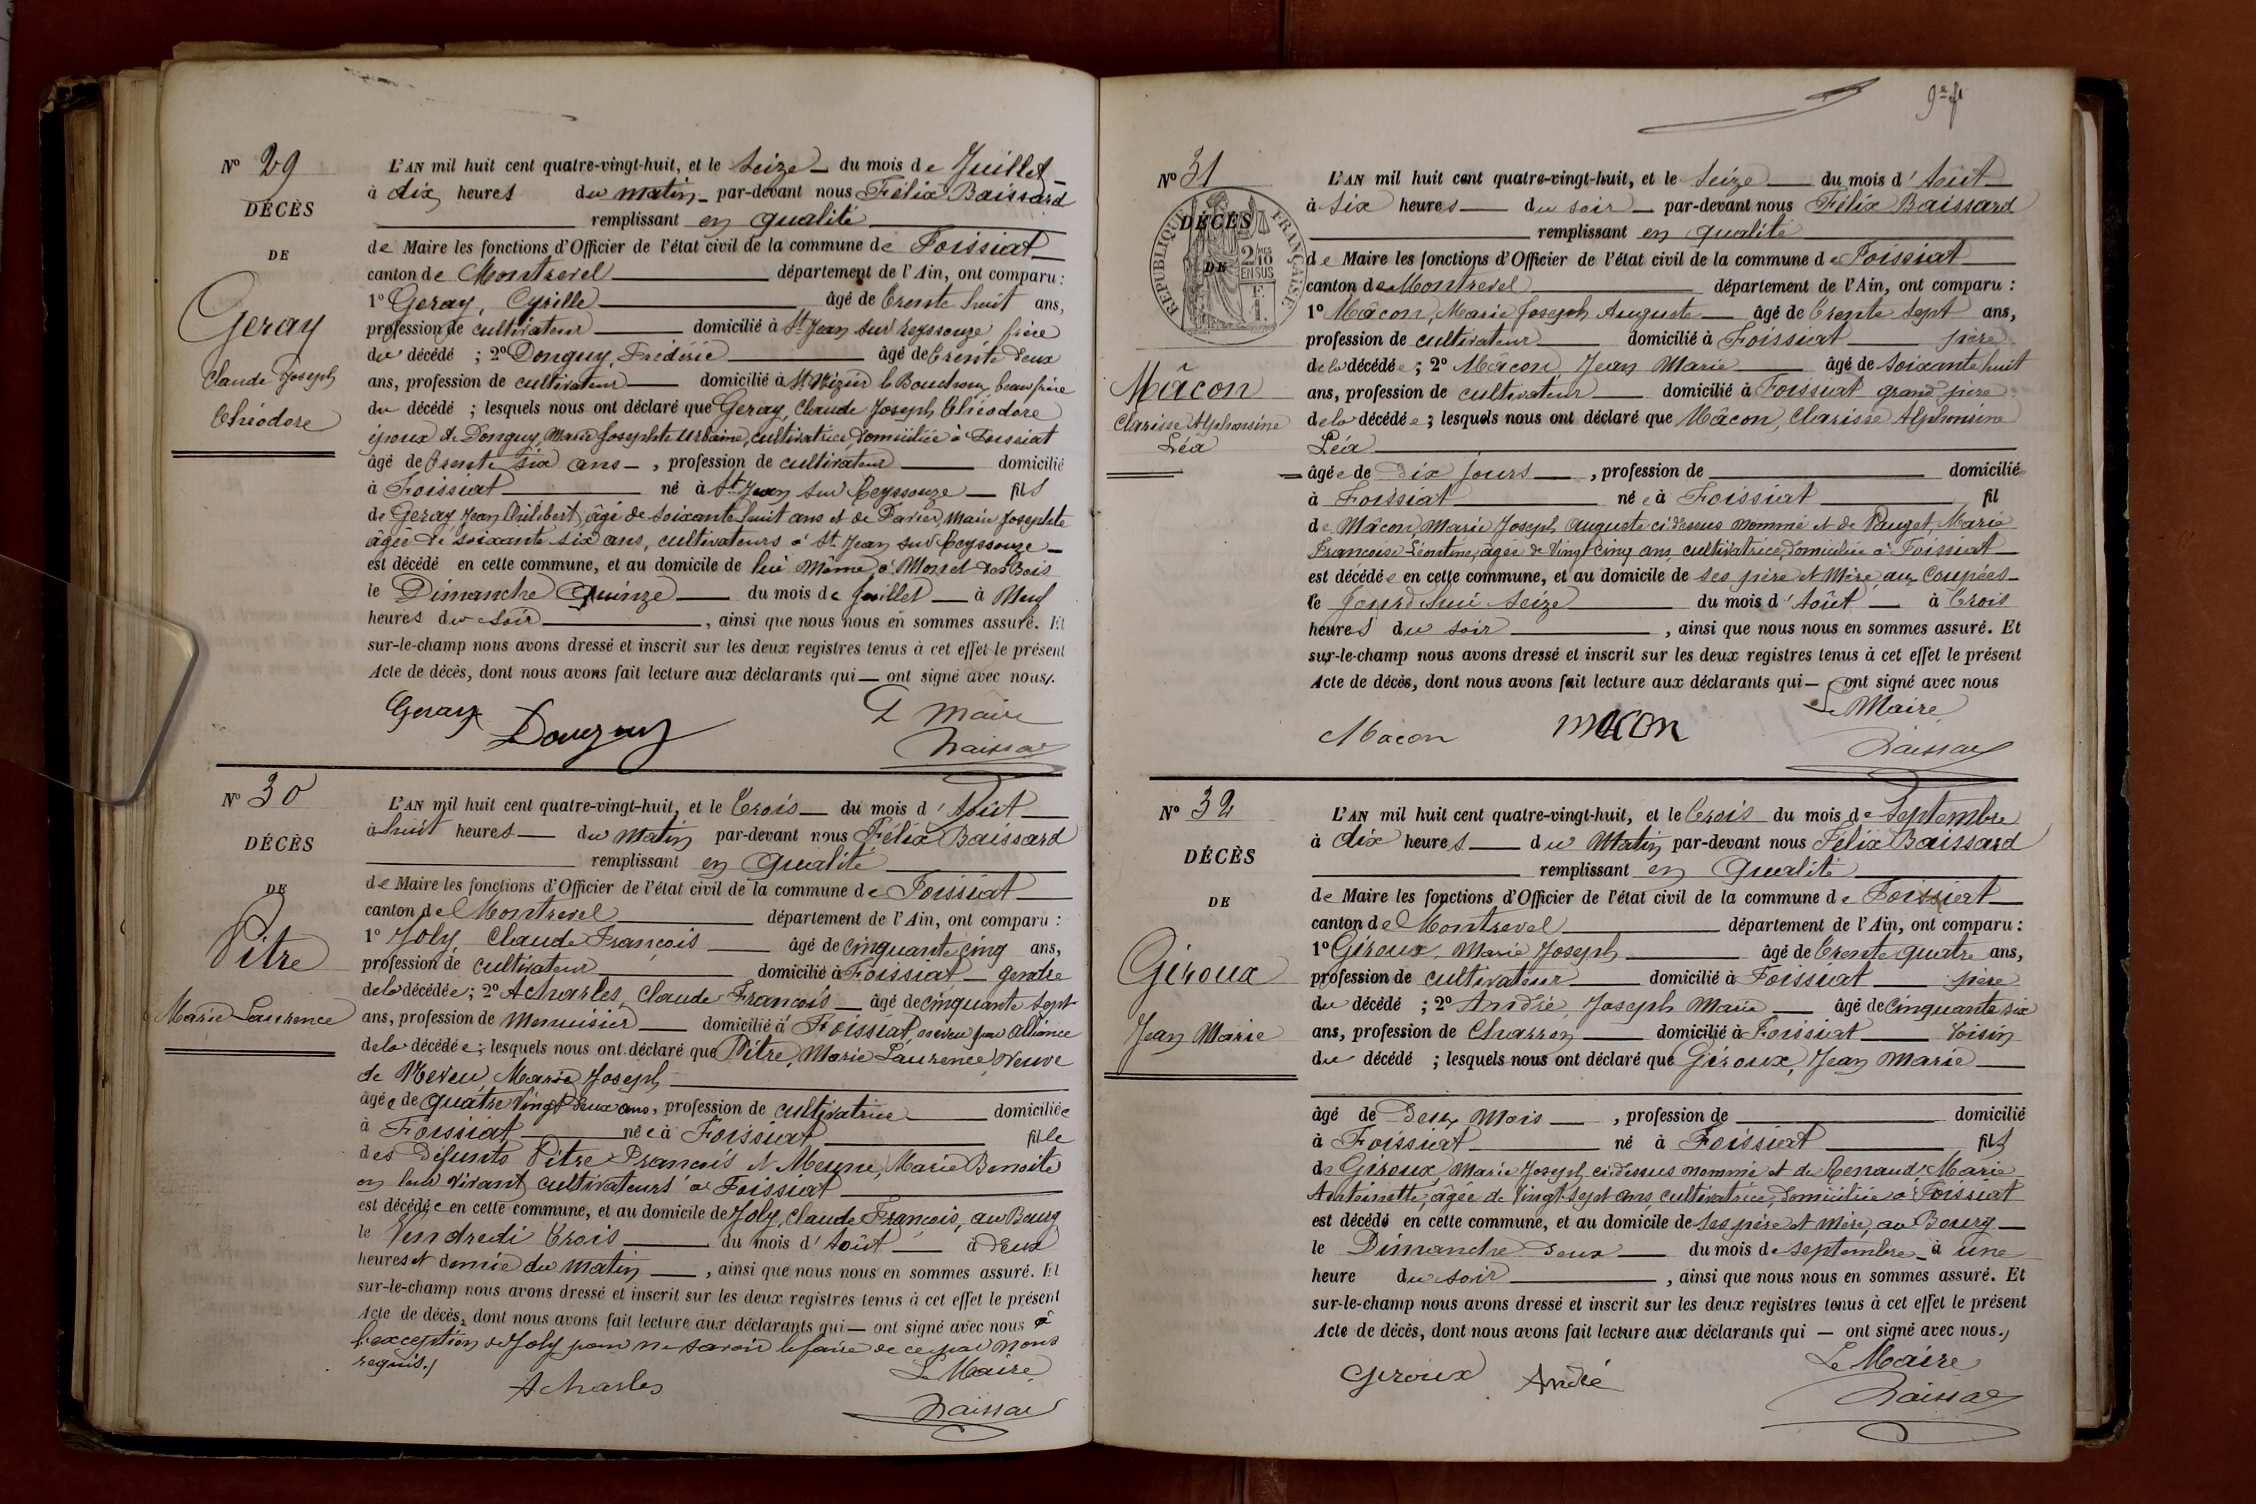 N° 29
DÉCÈS
DE
Geray
Claude Joseph
Théodore
L'AN mil huit cent quatre-vingt-huit, et le Seize du mois de Juillet
à dix heures du matin par-devant nous Félix Baissard
remplissant en qualité
de Maire les fonctions d'Officier de l'état civil de la commune de Foissiat
canton de Montrevel département de l'Ain, ont comparu :
1° Geray, Cyrille âgé de trente huit ans,
profession de cultivateur domicilié à St Jean sur Reyssouze frère
du décédé ; 2° Donguy, Frédéric âgé de trente deux
ans, profession de cultivateur domicilié à St Nizier le Bouchoux beau frère
du décédé ; lesquels nous ont déclaré que Geray, Claude Joseph Théodore
époux de Donguy, Marie Josephte Urbaine, cultivatrice, domiciliée à Foissiat
âgé de trente six ans, profession de cultivateur domicilié
à Foissiat né à St Jean sur Reyssouze fils
de Geray Jean Philibert, âgé de soixante huit ans et de Favier, Marie Josephte
âgée de soixante six ans, cultivateurs à St Jean sur Reyssouze
est décédé en cette commune, et au domicile de lui même, à Morel des Bois
le Dimanche Quinze du mois de Juillet à Neuf
heures du soir, ainsi que nous nous en sommes assuré. Et
sur-le-champ nous avons dressé et inscrit sur les deux registres tenus à cet effet le présent
Acte de décès, dont nous avons fait lecture aux déclarants qui ont signé avec nous.
Geray Donguy Le Maire
Baissard
N° 30
DÉCÈS
DE
Pitre
Marie Laurence
L'AN mil huit cent quatre-vingt-huit, et le Trois du mois d'Août
à huit heures du matin par-devant nous Félix Baissard
remplissant en qualité
de Maire les fonctions d'Officier de l'état civil de la commune de Foissiat
canton de Montrevel département de l'Ain, ont comparu :
1° Joly, Claude François âgé de cinquante cinq ans,
profession de cultivateur domicilié à Foissiat gendre
de la décédée ; 2° Acharles, Claude François âgé de cinquante sept
ans, profession de Menuisier domicilié à Foissiat, neveu par alliance
de la décédée ; lesquels nous ont déclaré que Pitre, Marie Laurence, Veuve
de Neveu, Marie Joseph
âgée de quatre vingt deux ans, profession de cultivatrice domiciliée
à Foissiat née à Foissiat fille
des défunts Pitre François et Meune, Marie Benoite
en leur vivant cultivateurs à Foissiat
est décédée en cette commune, et au domicile de Joly, Claude François, au Bourg
le Vendredi Trois du mois d'Août à Deux
heures et demie du matin, ainsi que nous nous en sommes assuré. Et
sur-le-champ nous avons dressé et inscrit sur les deux registres tenus à cet effet le présent
Acte de décès, dont nous avons fait lecture aux déclarants qui ont signé avec nous à
l'exception de Joly pour ne savoir le faire de ce par nous
requis.
Le Maire
Acharles
Baissard
N° 31
DÉCÈS
DE
RÉPUBLIQUE FRANÇAISE
2/10 EN SUS
Mâcon
Clarisse Alphonsine
Léa
L'AN mil huit cent quatre-vingt-huit, et le Seize du mois d'Août
à six heures du soir par-devant nous Félix Baissard
remplissant en qualité
de Maire les fonctions d'Officier de l'état civil de la commune de Foissiat
canton de Montrevel département de l'Ain, ont comparu :
1° Mâcon, Marie Joseph Auguste âgé de trente sept ans,
profession de cultivateur domicilié à Foissiat père
de la décédée ; 2° Mâcon, Jean Marie âgé de soixante huit
ans, profession de cultivateur domicilié à Foissiat grand père
de la décédée ; lesquels nous ont déclaré que Mâcon, Clarisse Alphonsine
Léa
âgée de dix jours, profession de domiciliée
à Foissiat née à Foissiat fil
de Mâcon, Marie Joseph Auguste ci dessus nommé et de Pauget, Marie
Françoise Léontine, âgée de vingt cinq ans, cultivatrice, domiciliée à Foissiat
est décédée en cette commune, et au domicile de ses père et mère, aux Coupées
le Jourd'hui seize du mois d'Août à Trois
heures du soir, ainsi que nous nous en sommes assuré. Et
sur-le-champ nous avons dressé et inscrit sur les deux registres tenus à cet effet le présent
Acte de décès, dont nous avons fait lecture aux déclarants qui ont signé avec nous
Le Maire
Mâcon macon
Baissard
N° 32
DÉCÈS
DE
Giroux
Jean Marie
L'AN mil huit cent quatre-vingt-huit, et le Trois du mois de Septembre
à dix heures du Matin par-devant nous Félix Baissard
remplissant en qualité
de Maire les fonctions d'Officier de l'état civil de la commune de Foissiat
canton de Montrevel département de l'Ain, ont comparu :
1° Giroux, Marie Joseph âgé de trente quatre ans,
profession de cultivateur domicilié à Foissiat père
du décédé ; 2° André, Joseph Marie âgé de cinquante six
ans, profession de Charron domicilié à Foissiat voisin
du décédé ; lesquels nous ont déclaré que Giroux, Jean Marie
âgé de deux mois, profession de domicilié
à Foissiat né à Foissiat fils
de Giroux, Marie Joseph, ci dessus nommé et de Renaud, Marie
Antoinette, âgée de vingt sept ans, cultivatrice, domiciliée à Foissiat
est décédé en cette commune, et au domicile de ses père et mère, au Bourg
le Dimanche deux du mois de septembre à une
heure du soir, ainsi que nous nous en sommes assuré. Et
sur-le-champ nous avons dressé et inscrit sur les deux registres tenus à cet effet le présent
Acte de décès, dont nous avons fait lecture aux déclarants qui ont signé avec nous.
Le Maire
Giroux André
Baissard